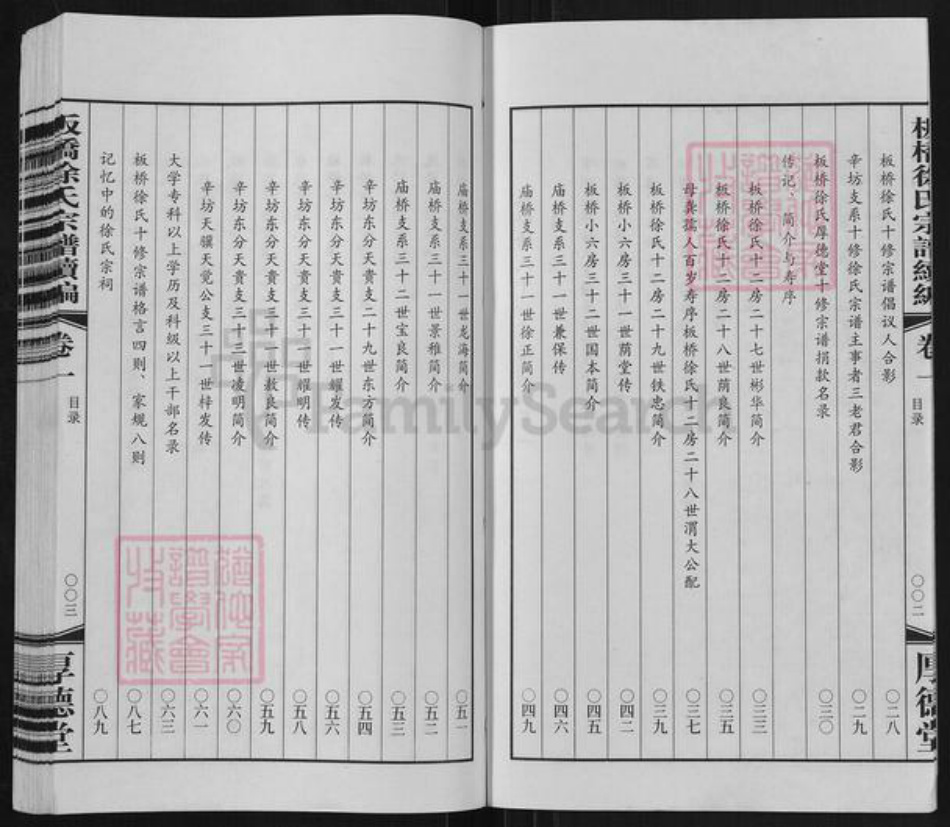 板桥徐氏宗谱续编 卷一 目录 〇〇二 厚德堂
板桥徐氏十修宗谱倡议人合影 〇二八
辛坊支系十修徐氏宗谱主事者三老君合影 〇二九
板桥徐氏厚德堂十修宗谱捐款名录 〇三〇
传记、简介与寿序
板桥徐氏十二房二十七世彬华简介 〇三三
板桥徐氏十二房二十八世荫良简介 〇三五
母龚孺人百岁寿序板桥徐氏十二房二十八世渭大公配 〇三七
板桥徐氏十二房二十九世铁忠简介 〇三九
板桥小六房三十一世荫堂传 〇四二
板桥小六房三十二世国本简介 〇四五
庙桥支系三十一世兼保传 〇四六
庙桥支系三十一世徐正简介 〇四九
庙桥支系三十一世龙海简介 〇五一
庙桥支系三十一世景稚简介 〇五二
庙桥支系三十二世宝良简介 〇五三
辛坊东分天贵支二十九世东方简介 〇五四
辛坊东分天贵支三十一世耀发传 〇五六
辛坊东分天贵支三十一世耀明传 〇五八
辛坊东分天贵支三十一世敖良简介 〇五九
辛坊东分天贵支三十三世凌明简介 〇六〇
辛坊天骥天觉公支三十一世梓发传 〇六一
大学专科以上学历及科级以上干部名录 〇六三
板桥徐氏十修宗谱格言四则、家规八则 〇八七
记忆中的徐氏宗祠 〇八九
板橋徐氏宗譜續編 卷一 目录 〇〇三 厚德堂
FamilySearch